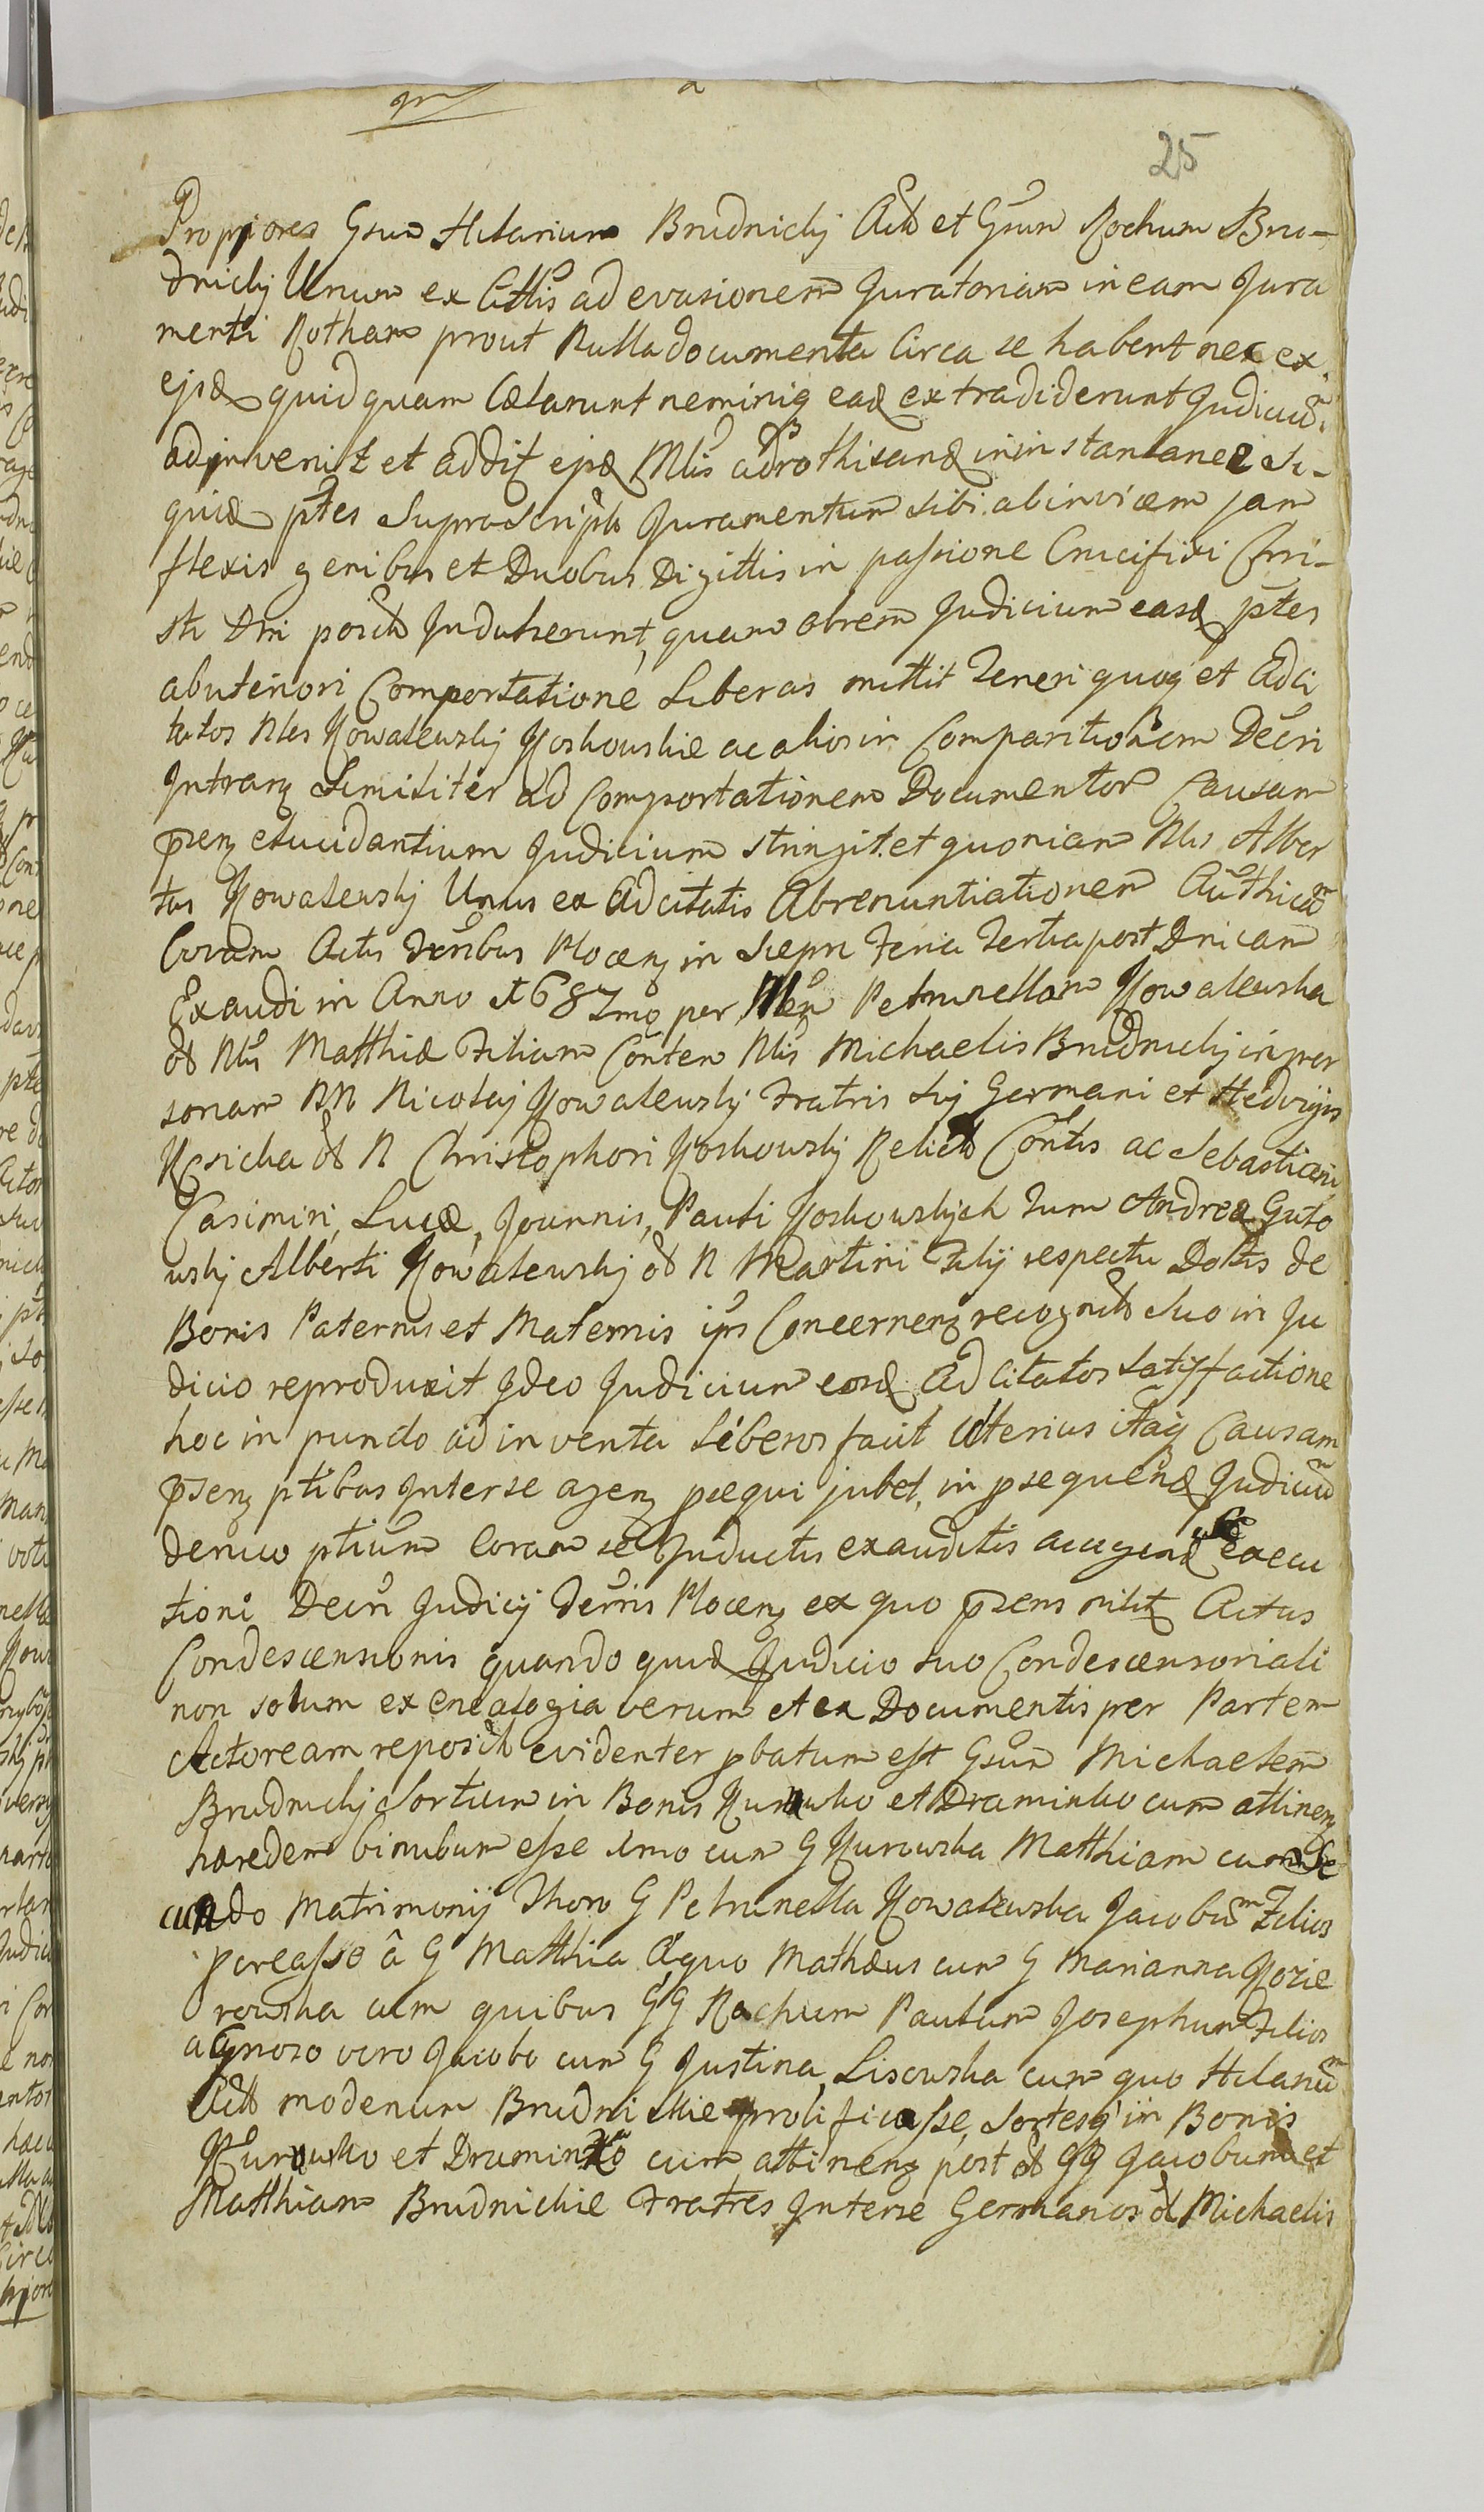 25
Propiores Gsum Hilarium Brudnicky Actt et Gsum Rochum Bru-
dnicky Unum ex Cittis ad evasionem Juratoriam in eam Jura
menti Rotham prout Nulla documenta Circa se habent nec ex
ejsd quidquam Cælarunt neminiq ead extradiderunt Judicium
adjnvenit et addit ejsd Mlis adrothisand in instantanee Si-
quid ptes Suprascript Juramentum sibi abinvicem jam
flexis genibus et Duobus Digittis in passione Crucifixi Chri-
sti Dni posit Indulserunt, quam obrem Judicium easd ptes
abuteriori Comportatione Liberas mittit Teneri quoq et Adci
tatos Nles Kowalewsky Koskowskie ac alios in Comparitionem Decri
Intranz Similiter ad Comportationem Documentor Causam
psenz elucidantium Judicium stringit et quoniam Nlis Alber
tus Kowalewsky Unus ex Adcitatis Abrenuntiationem Authicam
Coram Actis Tribus Plocenz in Sierpn Feria Tertia post Dnicam
Exaudi in Anno 1687mo per Nlem Petrunellam Kowalewska
ol Nlis Matthiæ Filiam Conten Nlis Michaelis Brudnicky in per
sonam NN Nicolaj Kowalewsky Fratris Sui Germani et Hedvigis
Rosicka ol N Christophori Koskowsky Relict Contis ac Sebastiani
Casimiri, Lucæ, Joannis, Pauli Koskowskych Tum Andreæ Guto
wsky Alberti Kowalewsky ol N Martini Filij respectu Dotis de
Bonis Paternis et Maternis ips Concernenz recognit Suo in Ju
dicio reproduxit Ideo Judicium eosd Adcitatos Satisfactione
hoc in puncto adinventa Liberos facit Ulterius itaq Causam
psenz ptibus Inter se agenz psequi jubet, in psequend Judicium
denuo ptium Coram se Inductis exauditis accigend execu
tioni Decri Judicij Terris Plocenz ex quo psens nitit Actus
Condescensionis quando quid Judicio suo Condescensoriali
non solum ex enealogia verum et ex Documentis per Partem
Actoream reposit evidenter pbatum est Gsum Michaelem
Brudnicky Sortium in Bonis Kurowko et Draminko cum attinenz
hæredem binubum esse 1mo cum G Kurowska Matthiam cum Se
cundo Matrimonij Thoro G Petrunella Kowalewska Jacobum Filios
pcreasse â G Matthia Aquo Mathæus cum G Marianna Kozie
rowska cum quibus GG Rochum Paulum Josephum Filios
a Gnoso vero Jacobo cum G Justina Lisowska cum quo Hilarium
Actt modernum Brudnickie prolificasse, Sortesq in Bonis
Kurowko et Draminko cum attinenz post ol GG Jacobum et
Matthiam Brudnickie Fratres Inter se Germanos ol Michaelis